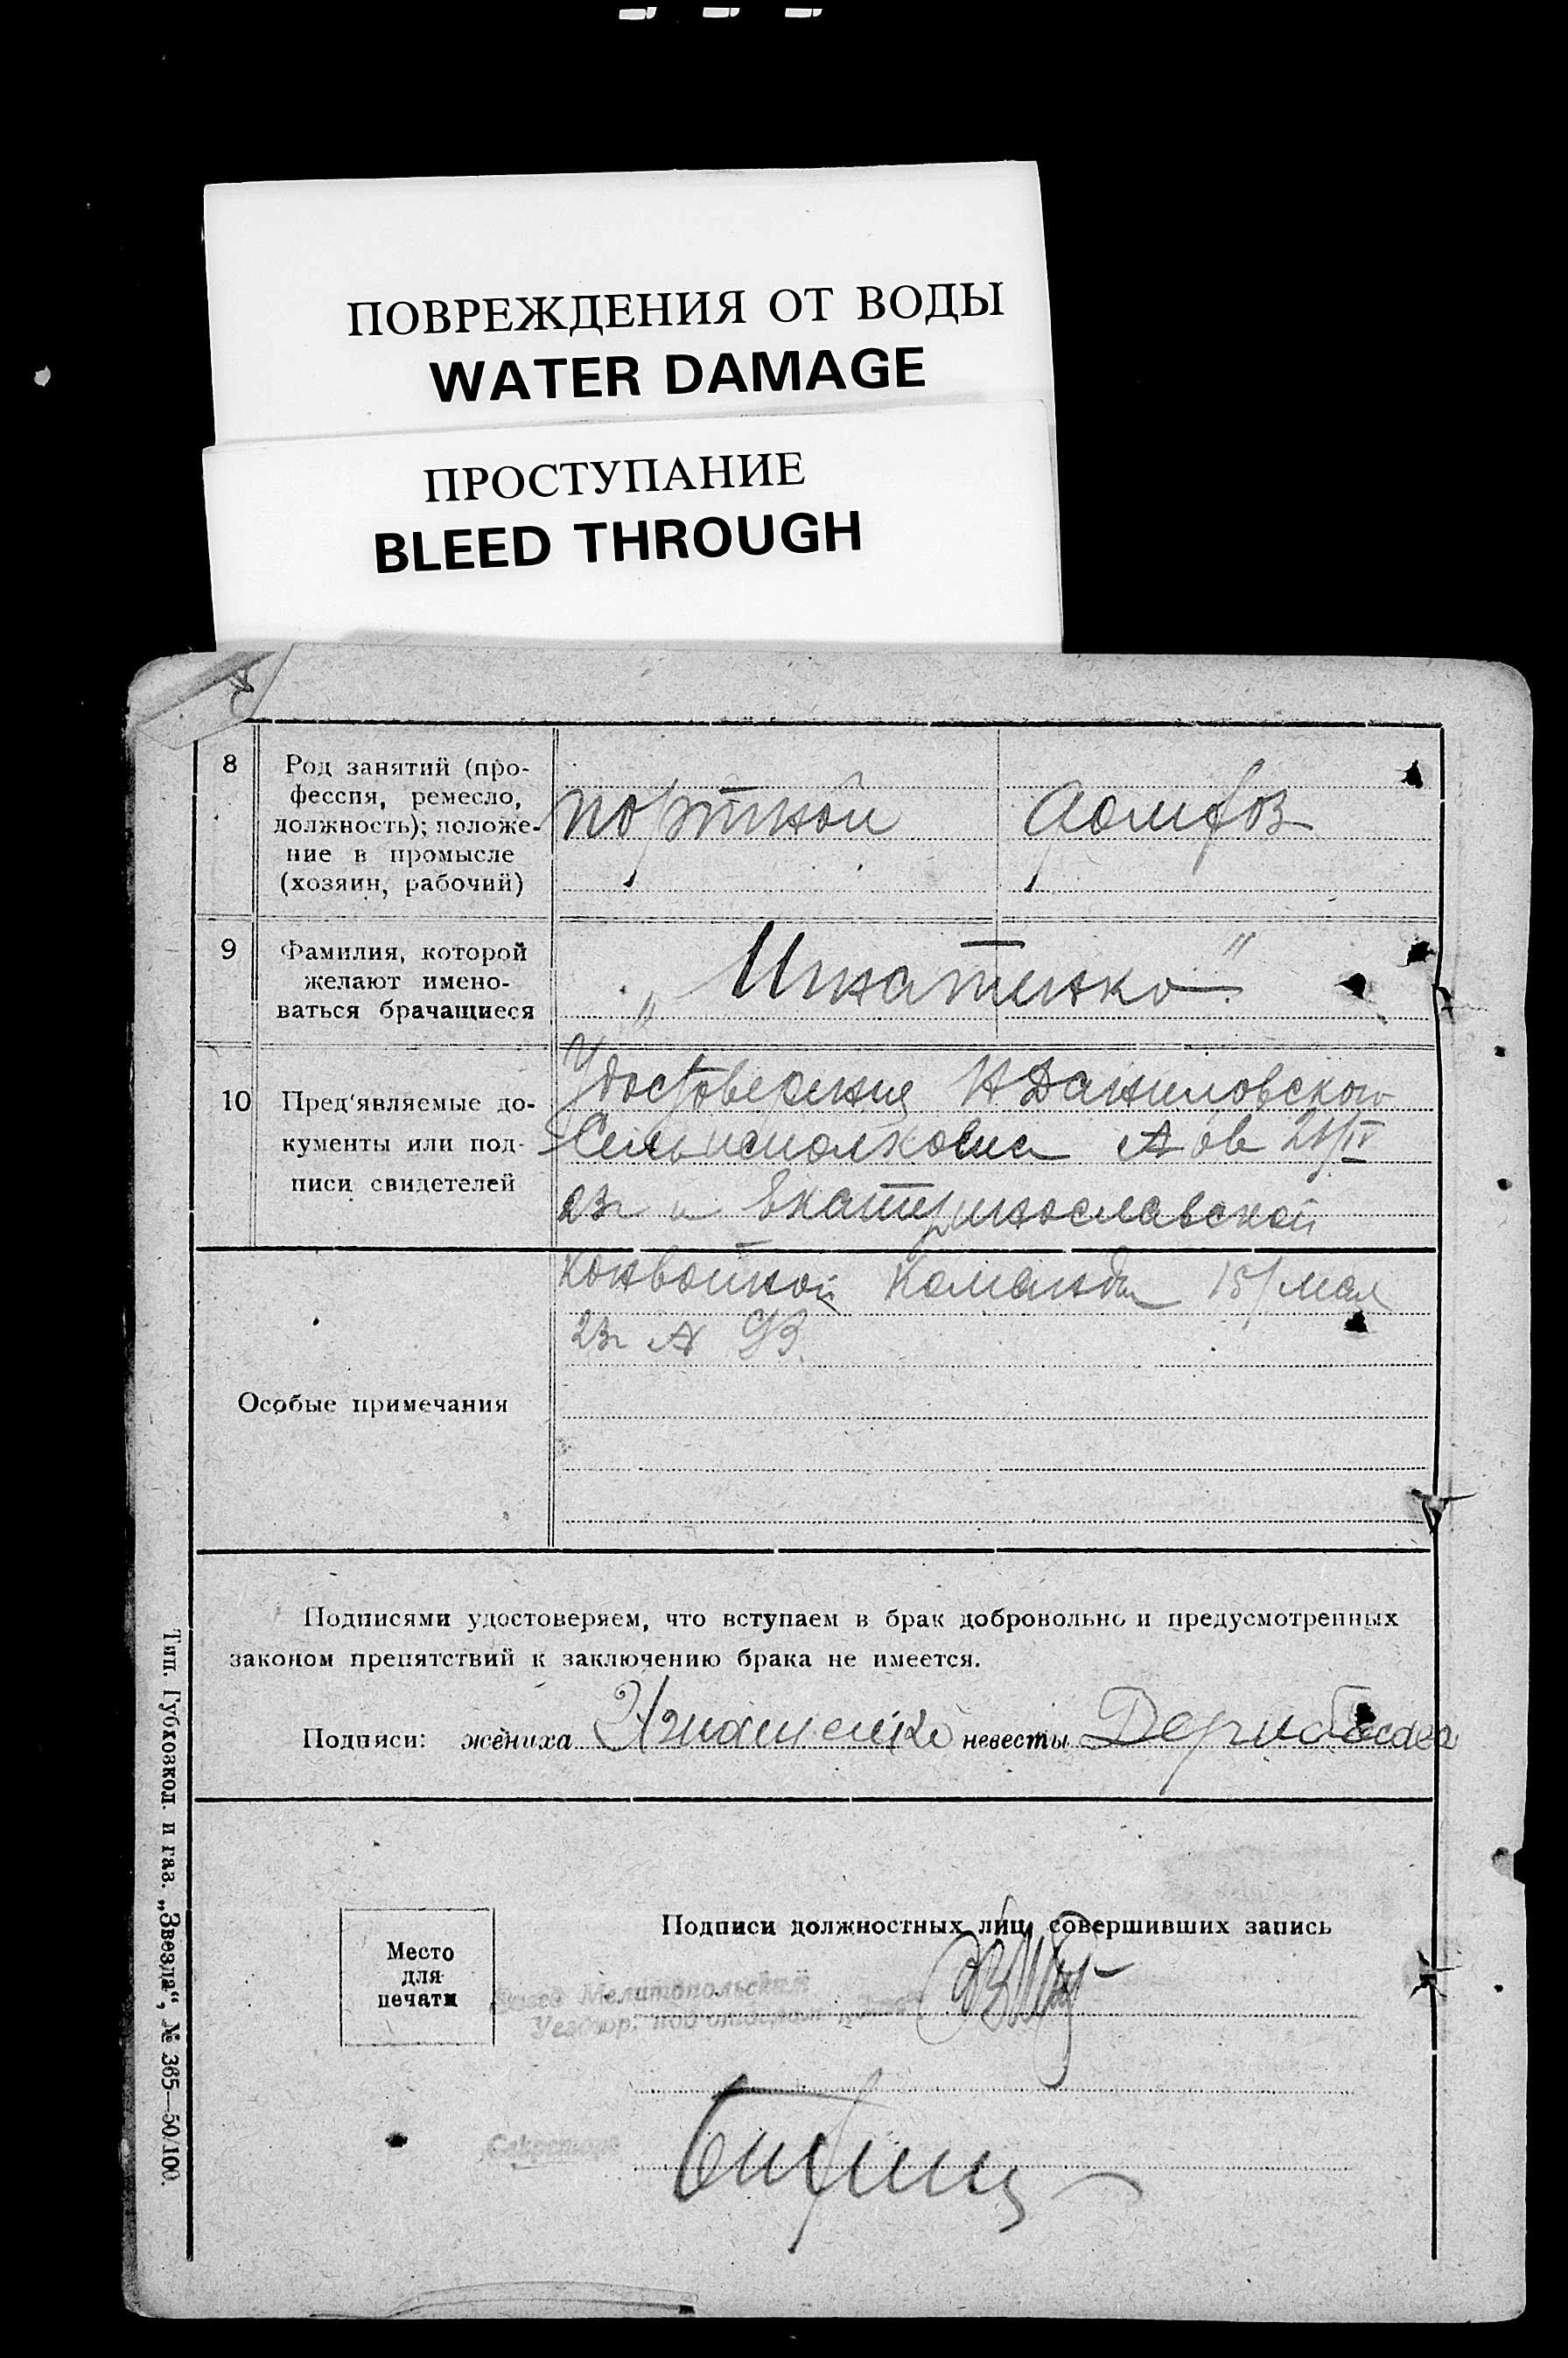 ПОВРЕЖДЕНИЯ ОТ ВОДЫ
WATER DAMAGE
ПРОСТУПАНИЕ
BLEED THROUGH
8
Род занятий (про-
фессия, ремесло,
должность); положе-
ние в промысле
(хозяин, рабочий)
портной
домхоз
9
Фамилия, которой
желают имено-
ваться брачащиеся
„Игнатенко"
10
Пред'являемые до-
кументы или под-
писи свидетелей
Удостоверения Н Даниловского
Сельисполкома 21/IV
23г и Екатеринославской
Конвойной Команды 15/мая
23г №
Особые примечания
Подписями удостоверяем, что вступаем в брак добровольно и предусмотренных
законом препятствий к заключению брака не имеется.
Подписи: жениха Игнатенко невесты
Место
для
печати
Подписи должностных лиц, совершивших запись
Мелитопольским
Секретарь
Тип. Губкозкол. и газ. „Звезда", № 365—50/100.